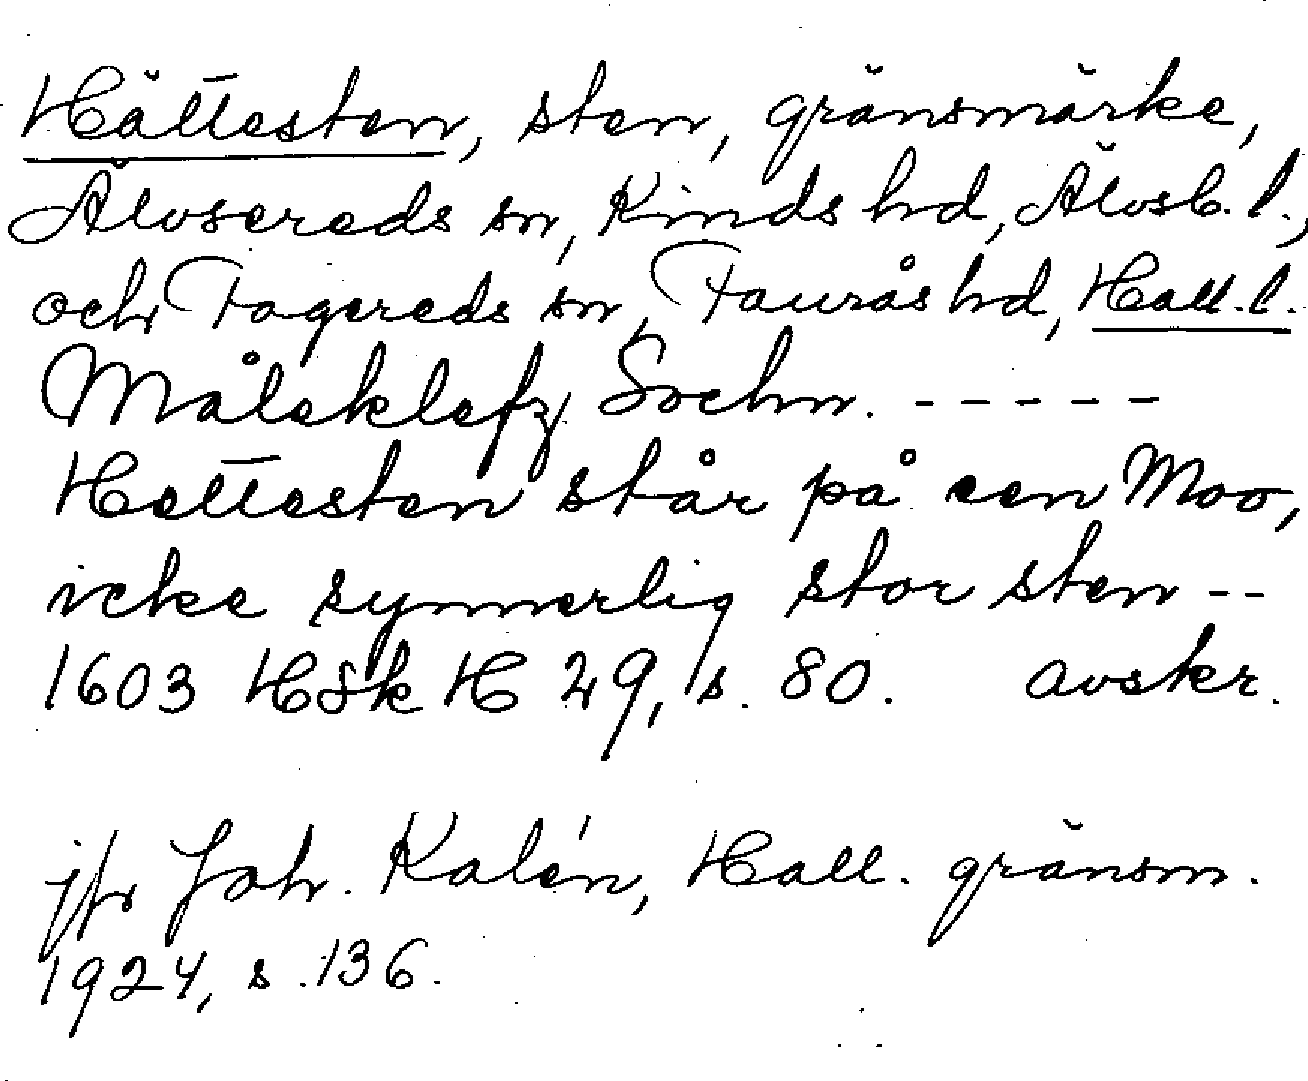 Hättesten, sten, gränsmärke,
Älvsereds sn, Kinds hd, Älvsb. l.,
och Fagereds sn, Faurås hd, Hall. l.
Måleklefz Sochn. - - - - -
Hettesten står på een Moo,
icke synnerlig stor sten --
1603 HSk H 29, s. 80. avskr.
jfr Joh. Kalén, Hall. gränsm.
1924, s. 136.